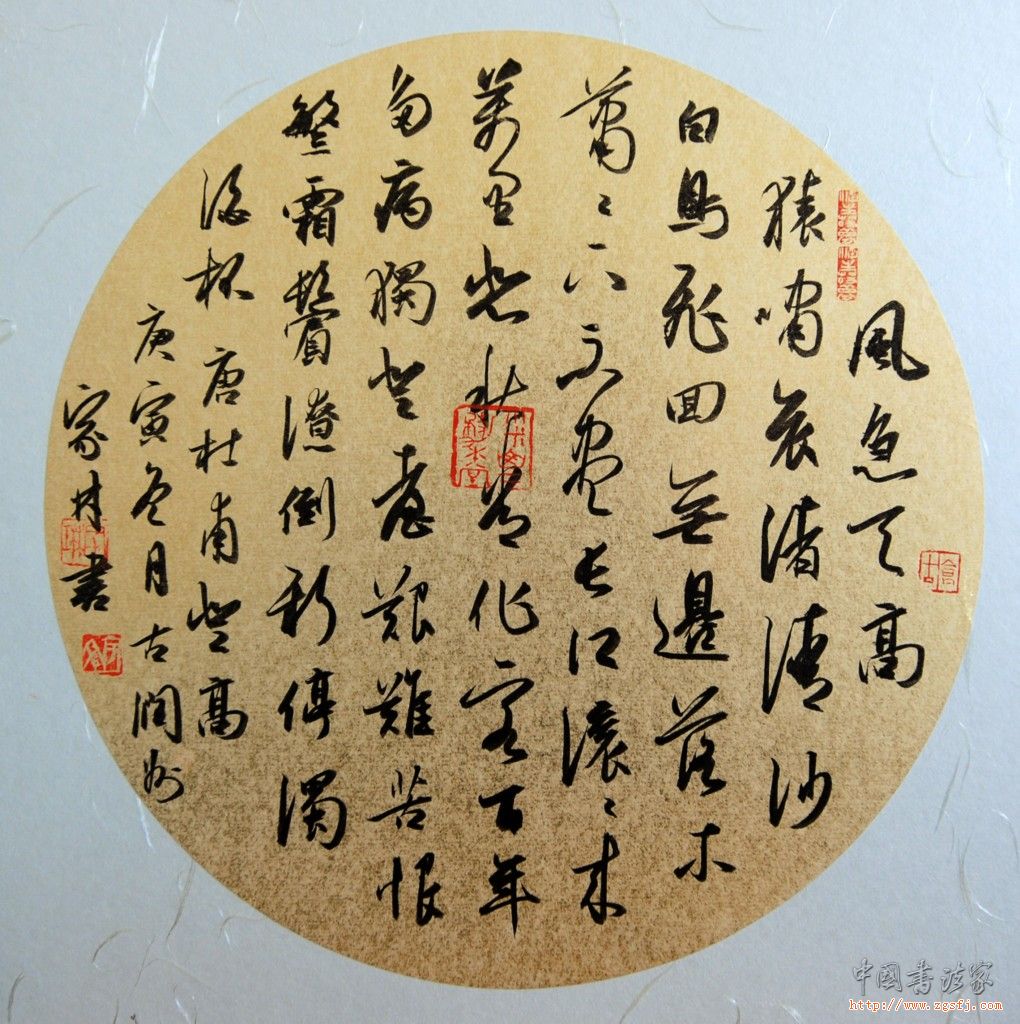 風急天高
猿嘯哀渚清沙
白鳥飛回無邊落木
蕭〻下不盡長江滾〻來
萬里悲秋常作客百年
多病獨登臺艱難苦恨
繁霜鬢潦倒新停濁
酒杯 唐杜甫登高
庚寅冬月古潤州
家 書
中國書法家
http://www.zgsfj.com